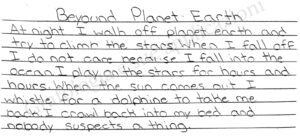 Beyound Planet Earth
At night I walk off planet earth and
try to climb the stars. When I fall off
I do not care because I fall into the
ocean. I play on the stars for hours and
hours. When the sun comes out I
whistle for a dolphine to take me
back. I crawl back into my bed and
nobody suspects a thing.